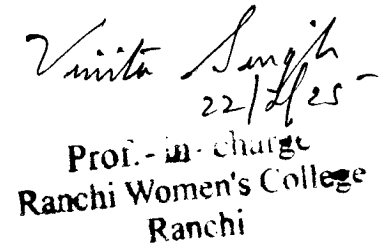 Vinita Singh
Prof.-in-charge
Ranchi Women's College
Ranchi